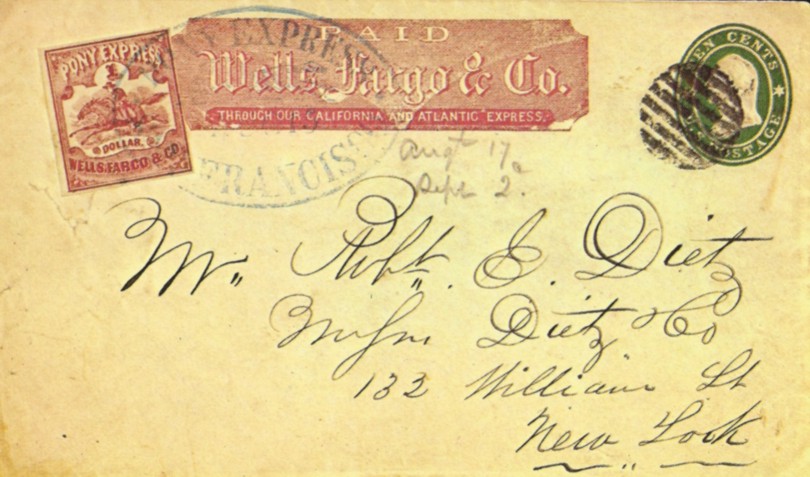 PONY EXPRESS
DOLLAR.
WELLS, FARGO & CO.
PAID
Wells, Fargo & Co.
THROUGH OUR CALIFORNIA AND ATLANTIC EXPRESS.
PONY EXPRESS
FRANCISCO
TEN CENTS
U.S. POSTAGE
Augt 17
Sept 2.
Mr. Robt. E. Dietz
Dietz & Co
132 William St
New York